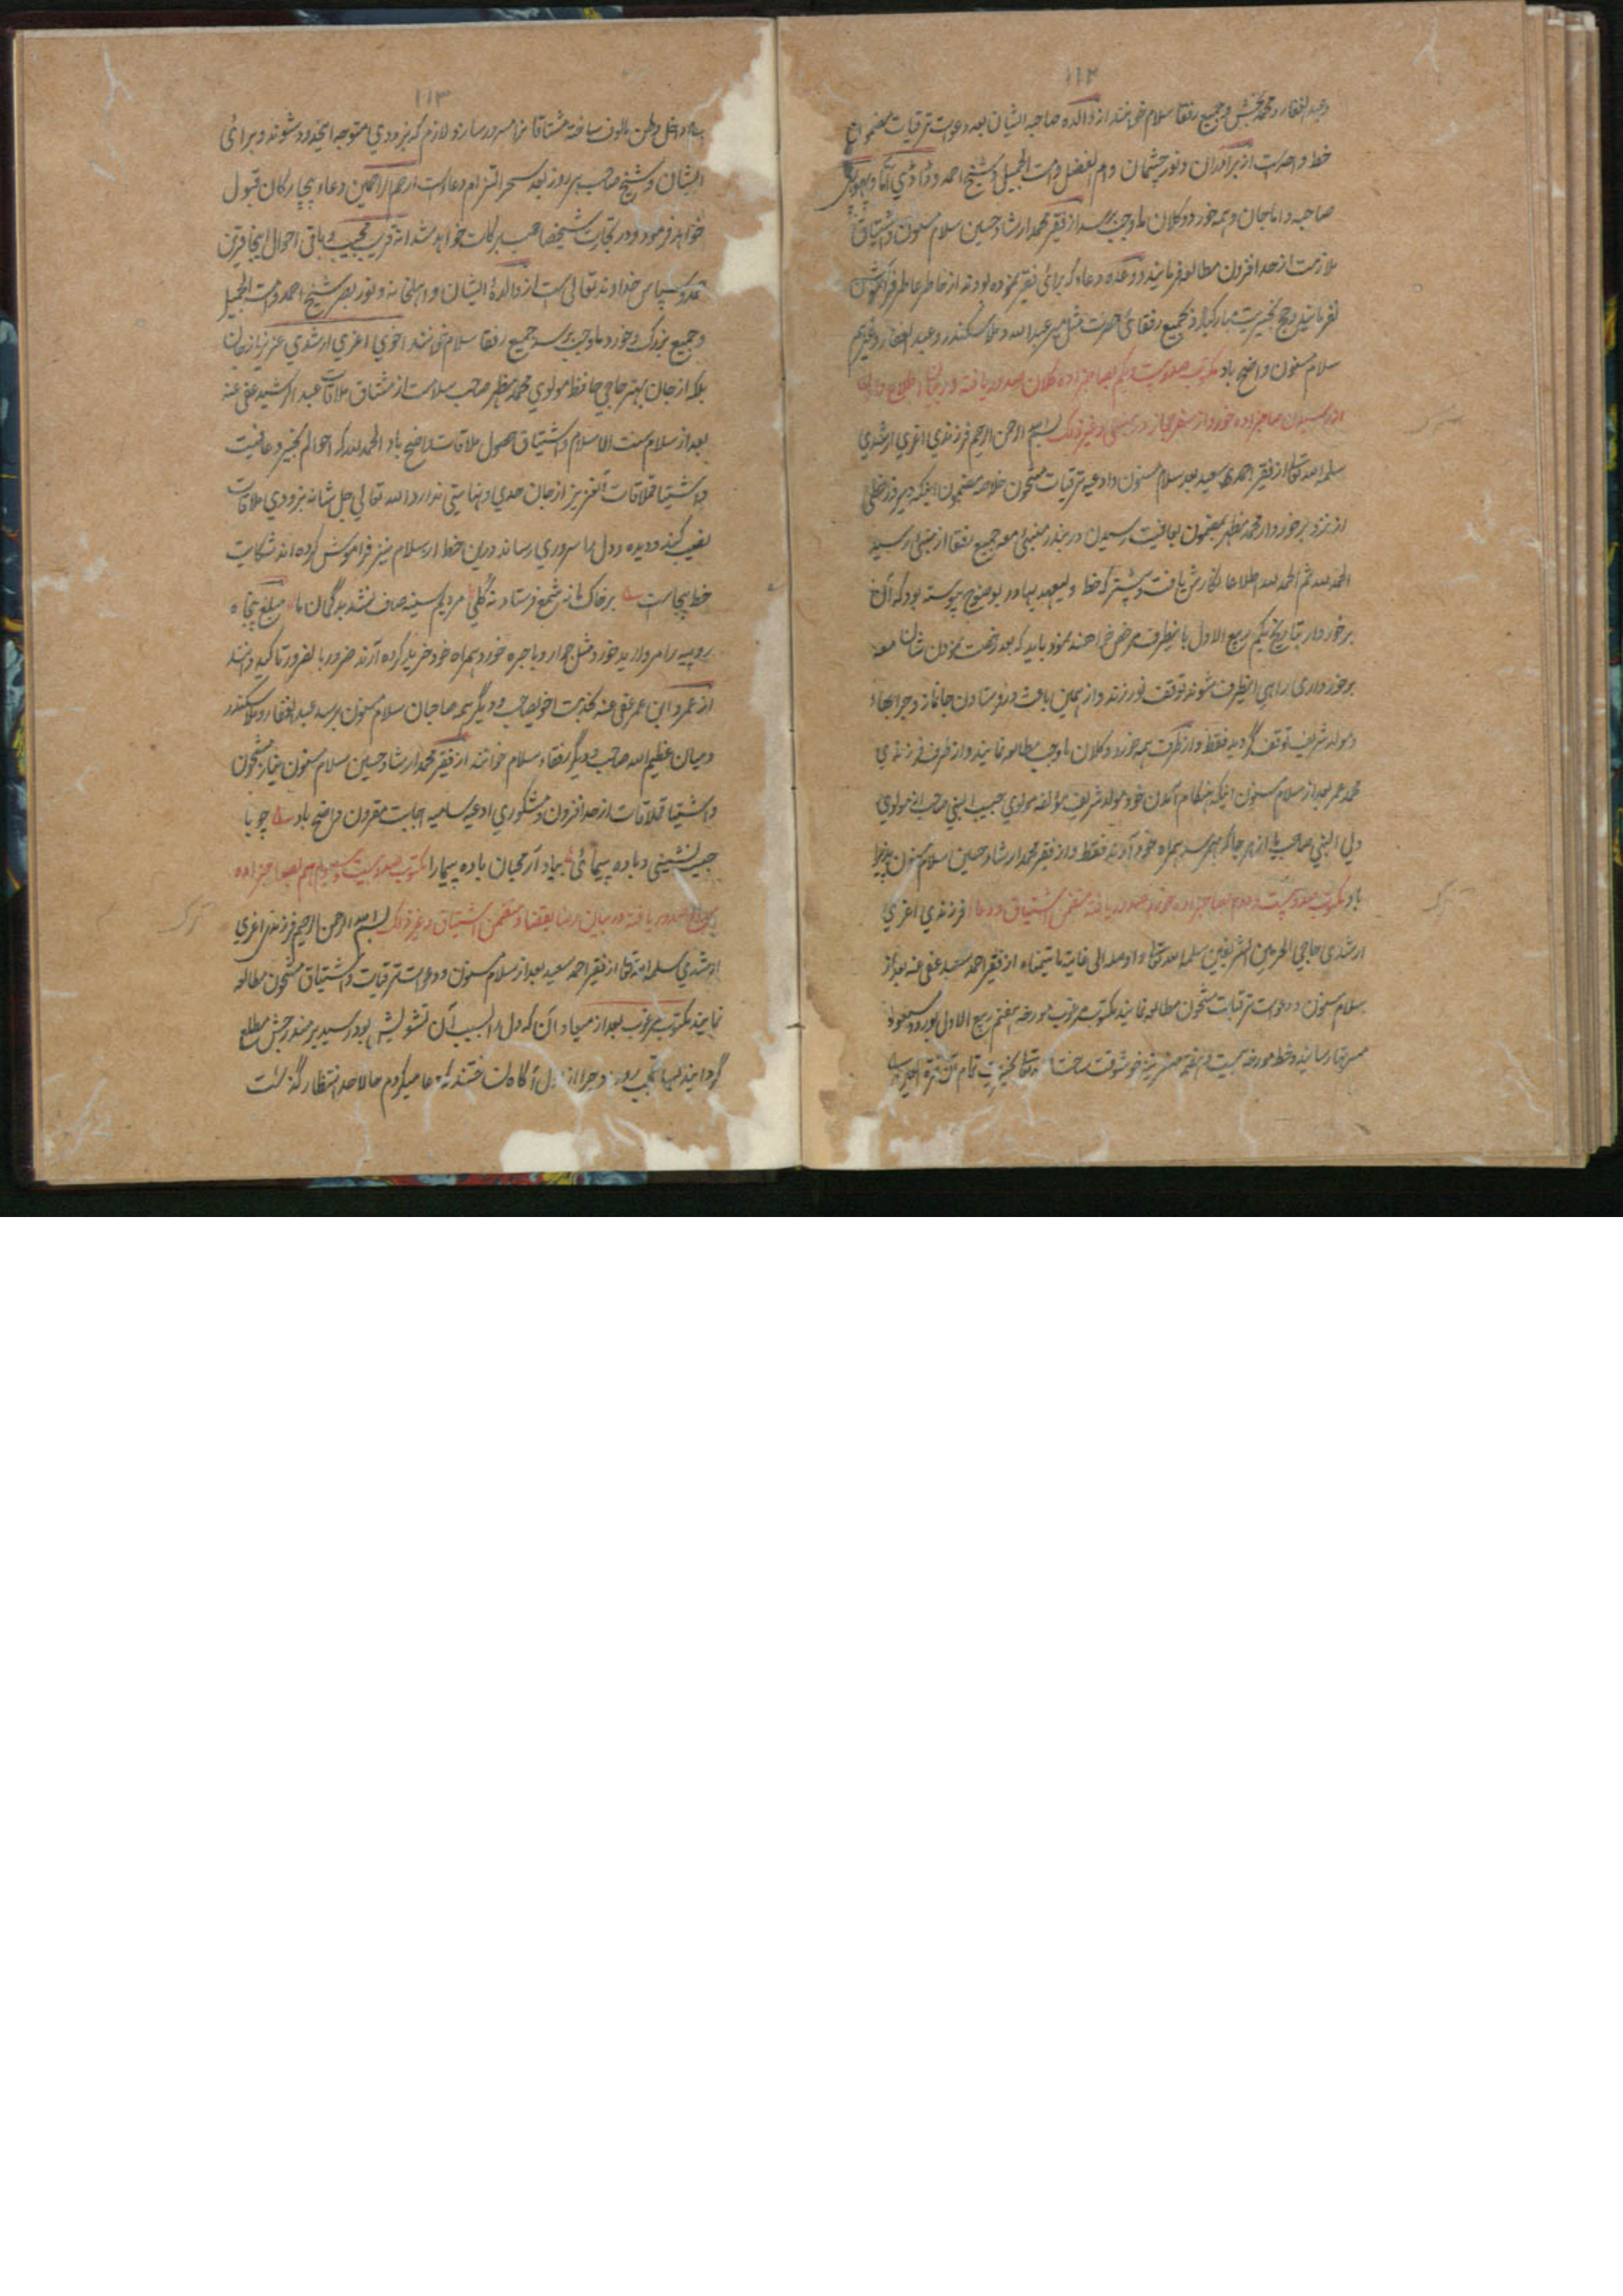 ۱۱۲
وعبدالغفار ومحمد بخش وجمیع رفقا سلام خوانند از والده صاحبه ایشان بعد دعوات ترقیات مضمون
خط واحد است از برادران ونور چشمان وام الفضل وامت الجمیل وشیخ احمد
صاحبه واماجان وهمه خورد وکلان ماوجب برسد از فقیر محمد ارشاد حسین سلام مسنون واشتیاق
ملازمت از حد افزون مطالعه فرمایند ووعده دعاء که برای فقیر نموده بودند از خاطر عاطر فراموش
نفرمایند وحج بخیریت مبارکباد وبجمیع رفقای حضرت مثل میر عبدالله وملا سکندر وعبدالغفار وغیرهم
سلام مسنون واضح باد مکتوب صد وبیست ویکم بصاحبزاده کلان صدور یافته در بیان اطلاع دادن
از رسیدن صاحبزاده خورد از سفر حجاز در بمبئی وغیر ذلک بسم الله الرحمن الرحیم فرزندی اعزی ارشدی
سلمه الله تعالی از فقیر احمد سعید بعد سلام مسنون وادعیه ترقیات مشحون خلاصه مضمون اینکه دیروز خطی
از نزد برخوردار محمد مظهر بمضمون بعافیت رسیدن در بندر بمبئی معه جمیع رفقا از بمبئی رسید
الحمد لله ثم الحمد لله اطلاعا نگارش یافت وپیشتر که خط ولیعهد بهادر بوضوح پیوسته بود که آن
برخوردار بتاریخ یکم ربیع الاول باینطرف مرخص خواهند نمود باید که بعد رخصت نمودن شان معه
برخورداری راهی اینطرف شوند توقف نورزند واز همین باعث در فرستادن جانماز وجرابهاء
ومولد شریف توقف گردید فقط واز طرف همه خورد وکلان ماوجب مطالعه نمایند واز طرف فرزندی
محمد عمر بعد از سلام مسنون اینکه هنگام آمدن خود مولد شریف مؤلفه مولوی حبیب النبی صاحب ابن مولوی
ولی النبی صاحب را از هر جا که بهم رسد همراه خود آورند فقط واز فقیر محمد ارشاد حسین سلام مسنون پذیرا
باد مکتوب صد وبیست ودوم بصاحبزاده خورد صدور یافته متضمن اشتیاق ودعا فرزندی اعزی
ارشدی حاجی الحرمین الشریفین سلمه الله تعالی واوصله الی غایة ما یتمناه از فقیر احمد سعید عفی عنه بعد از
سلام مسنون ودعوات ترقیات مشحون مطالعه نمایند مکتوب مرغوب مورخه هفتم ربیع الاول بورود مسعود
مسرتها رسانید وخط مورخه بیست وهفتم صفر نیز خوشوقت ساخت
۱۱۳
داخل وطن مالوف ساخته مشتاقانرا مسرور سازند لازم که بزودی متوجه اینحدود شوند وبرای
ایشان وشیخ صاحب هر روز بعد سحر التزام دعاء است ارحم الراحمین دعاء بیچارگان قبول
خواهد فرمود ودر تجارت شیخصاحب برکات خواهد شد انه قریب مجیب وباقی احوال اینجا قرین
حمد وسپاس خداوند تعالی است از والدهٔ ایشان واهلخانه ونور بصر شیخ احمد وامت الجمیل
وجمیع بزرگ وخورد ماوجب برسد جمیع رفقا سلام خوانند اخوی اعزی ارشدی عزیز از جان
بلکه از جان بهتر حاجی حافظ مولوی محمد مظهر صاحب سلامت از مشتاق ملاقات عبدالرشید عفی عنه
بعد از سلام سنت الاسلام واشتیاق حصول ملاقات واضح باد الحمد لله که احوالم بخیر وعافیت
واشتیاق ملاقات آنعزیز از جان حدی ونهایتی ندارد الله تعالی جل شانه بزودی ملاقات
نصیب کند ودیده ودل را سروری رساند درین خط ارسلام نیز فراموش کرده اند شکایت
خط بیجاست برخاک ما نه شمع فرستاد نه گلی مردیم سینه صاف نشد بدگمان ما مبلغ پنجاه
روپیه را مروارید خورد مثل جوار وباجره خورد همراه خود خرید کرده آرند ضرور بالضرور تاکید دانند
از عمر وابی عمر عفی عنه بخدمت اخویصاحب ودیگر همه صاحبان سلام مسنون برسد عبدالغفار وملا سکندر
ومیان عظیم الله صاحب ودیگر رفقاء سلام خوانند از فقیر محمد ارشاد حسین سلام مسنون نیاز مشحون
واشتیاق ملاقات از حد افزون ومشکوری ادعیه سامیه اجابت مقرون واضح باد چو با
حبیب نشینی وباده پیمائی بیاد آر محبان باده پیما را مکتوب صد وبیست وسیوم هم بصاحبزاده
صدور یافته در بیان رضا بقضا ومتضمن اشتیاق وغیر ذلک بسم الله الرحمن الرحیم فرزندی اعزی
ارشدی سلمه الله تعالی از فقیر احمد سعید بعد از سلام مسنون ودعوات ترقیات واشتیاق مشحون مطالعه
نمایند مکتوب مرغوب بعد از میعاد آن که دل را بسبب آن تشویش بود رسید بر مندرجش مطلع
گردانید حالا حد انتظار گذشت